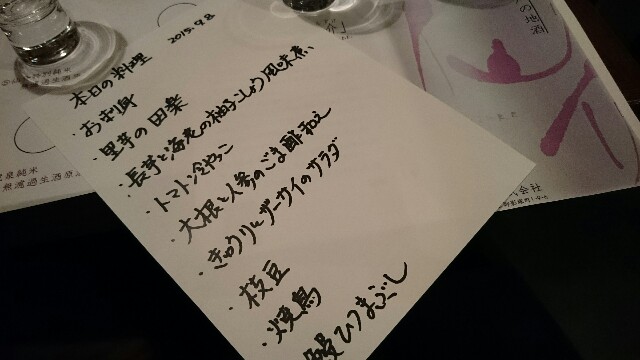 2015.9.8
本日の料理
・お刺身
・里芋の田楽
・長芋と海老の柚子こしょう風味煮
・トマト冷やっこ
・大根と人参のごま酢和え
・きゅうりとザーサイのサラダ
・枝豆
・焼鳥
鰻ひつまぶし
の地酒
純米
無濾過生酒原
会社